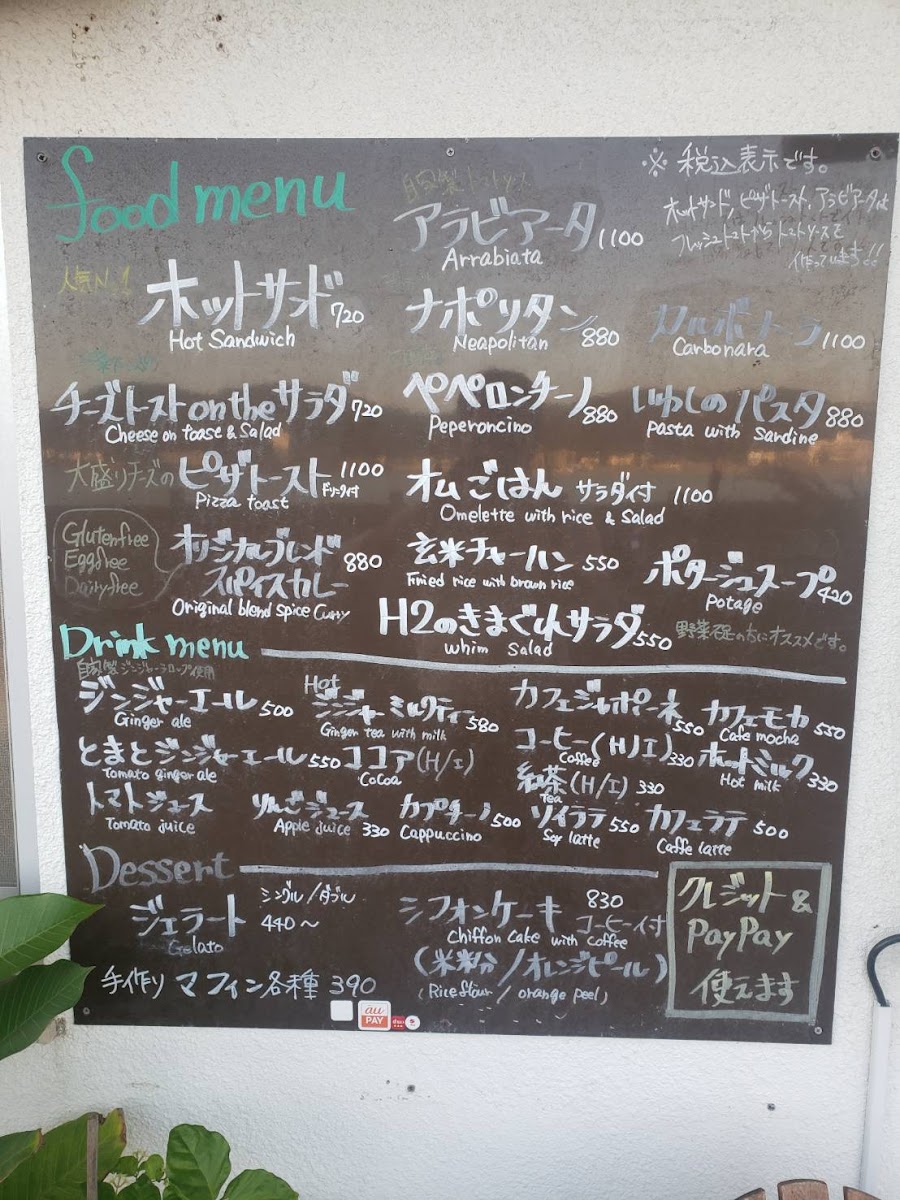 food menu
※ 税込表示です。
ホットサンド、ピザトースト、アラビアータは
フレッシュトマトから トマトソースを
作っています!!
自家製トマトソース
アラビアータ 1100
Arrabiata
人気No.1
ホットサンド 720
Hot Sandwich
ナポリタン 880
Neapolitan
カルボナーラ 1100
Carbonara
チーズトースト on the サラダ 720
Cheese on toast & Salad
ペペロンチーノ 880
Peperoncino
いわしのパスタ 880
pasta with Sardine
大盛りチーズのピザトースト 1100
ドリンク付
Pizza toast
オムごはん サラダ付 1100
Omelette with rice & Salad
Glutenfree
Eggfree
Dairyfree
オリジナルブレンド
スパイスカレー 880
Original blend Spice Curry
玄米チャーハン 550
Fried rice with brown rice
ポタージュスープ 420
Potage
H2のきまぐれサラダ 550
Whim Salad
野菜不足の方にオススメです。
Drink menu
自家製ジンジャーシロップ使用
ジンジャーエール 500
Ginger ale
Hot
ジンジャーミルクティー 580
Ginger tea with milk
カフェジャポーネ 550
カフェモカ 550
Cafe mocha
とまとジンジャーエール 550
Tomato ginger ale
ココア(H/I)
Cocoa
コーヒー(H/I) 330
Coffee
ホットミルク 330
Hot milk
紅茶(H/I) 330
Tea
トマトジュース
Tomato juice
りんごジュース
Apple juice 330
カプチーノ 500
Cappuccino
ソイラテ 550
Soy latte
カフェラテ 500
Caffe latte
Dessert
ジェラート
Gelato
シングル/ダブル
440〜
シフォンケーキ 830
コーヒー付
Chiffon Cake with coffee
(米粉/オレンジピール)
(Rice flour / orange peel)
手作り マフィン各種 390
クレジット&
PayPay
使えます
au
PAY